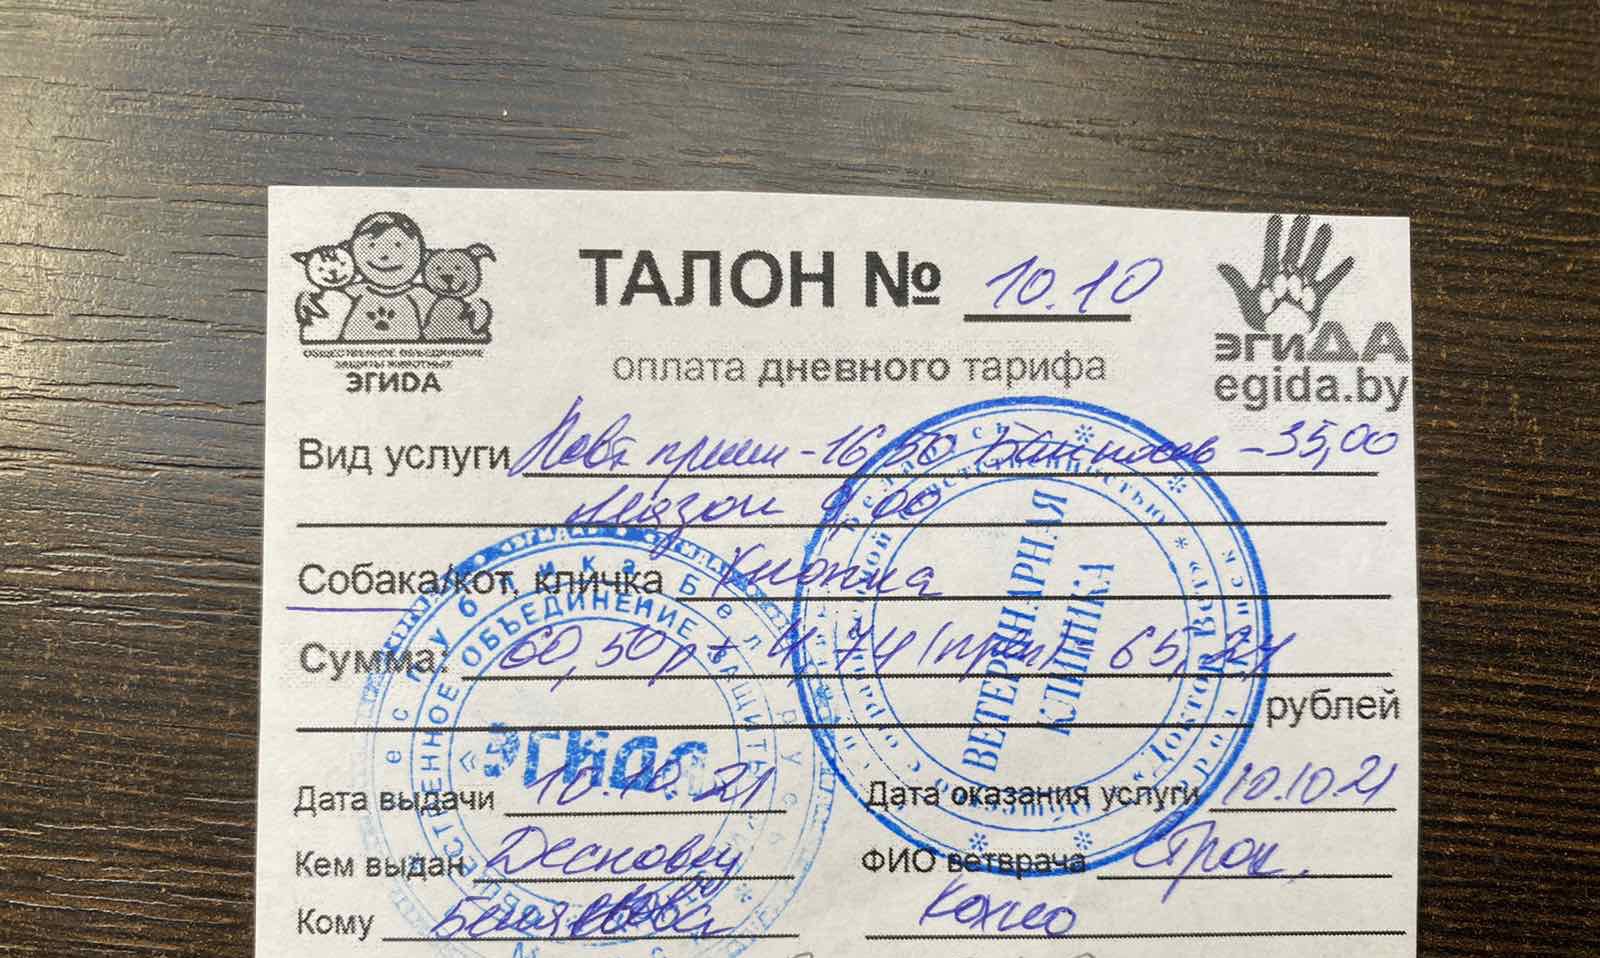 ТАЛОН № 10.10
ОБЩЕСТВЕННОЕ ОБЪЕДИНЕНИЕ
ЗАЩИТЫ ЖИВОТНЫХ
ЭГИДА
ЭГИДА
egida.by
оплата дневного тарифа
Вид услуги Повт прием - 16,50 -35,00
9,00
Собака/кот, кличка Кнопка
Сумма: 60,50р + 4,74 65,24
рублей
Дата выдачи 10.10.21 Дата оказания услуги 10.10.21
Кем выдан ФИО ветврача Строк,
Кому Кохно
Республика Беларусь
ОБЩЕСТВЕННОЕ ОБЪЕДИНЕНИЕ ЗАЩИТЫ
«ЭГИДА»
ВЕТЕРИНАРНАЯ
КЛИНИКА
«Доктор Вет»